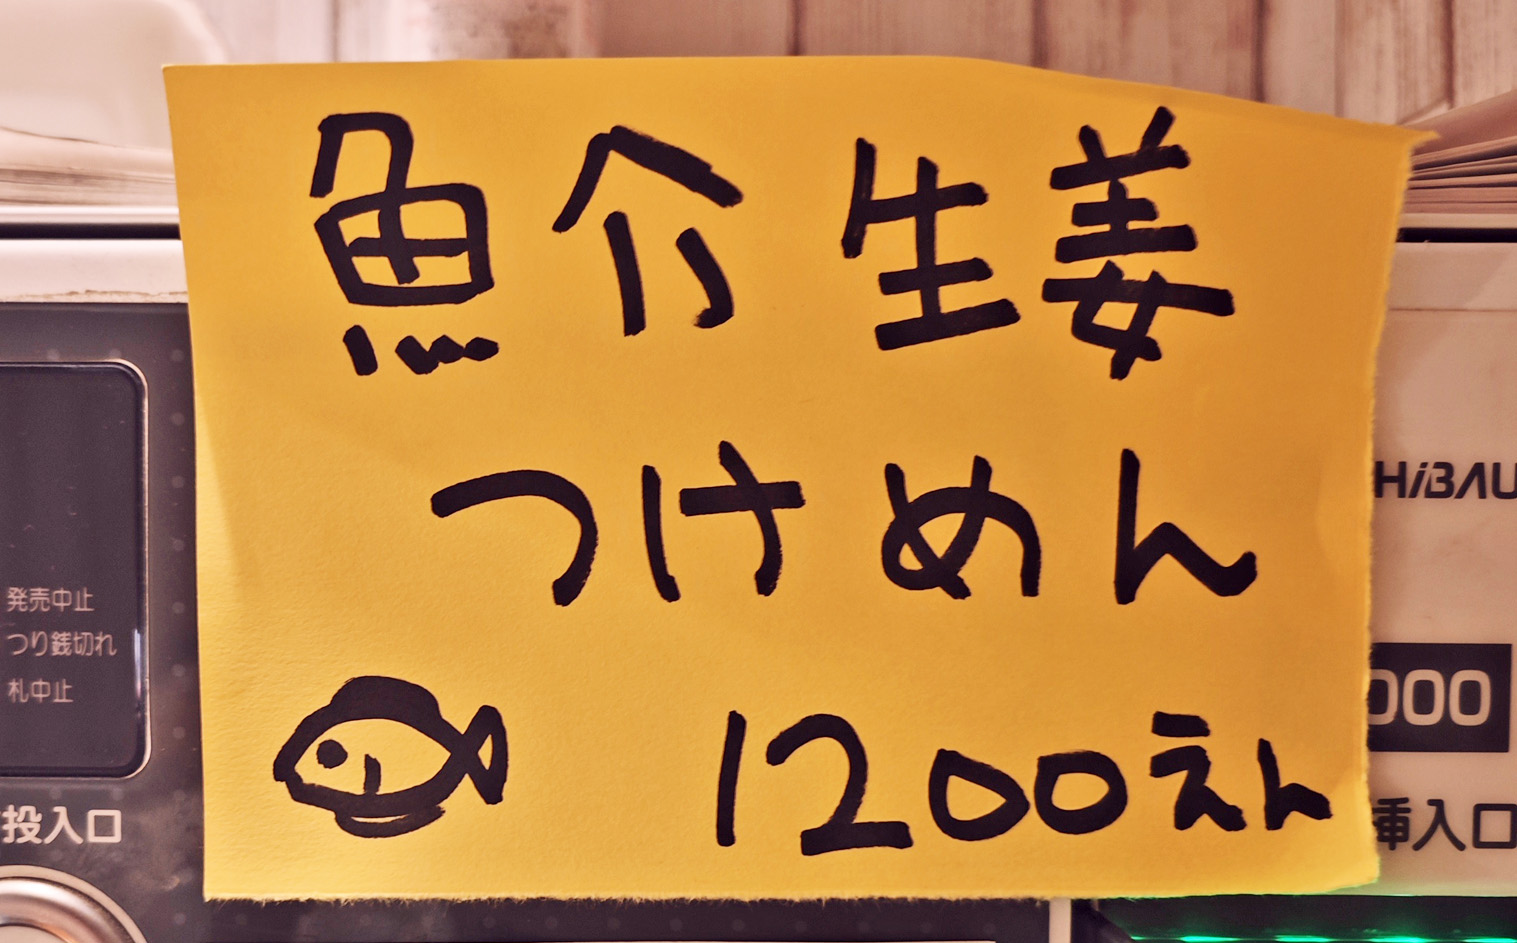 魚介生姜
つけめん
1200えん
HiBAU
発売中止
つり銭切れ
札中止
000
投入口
挿入口